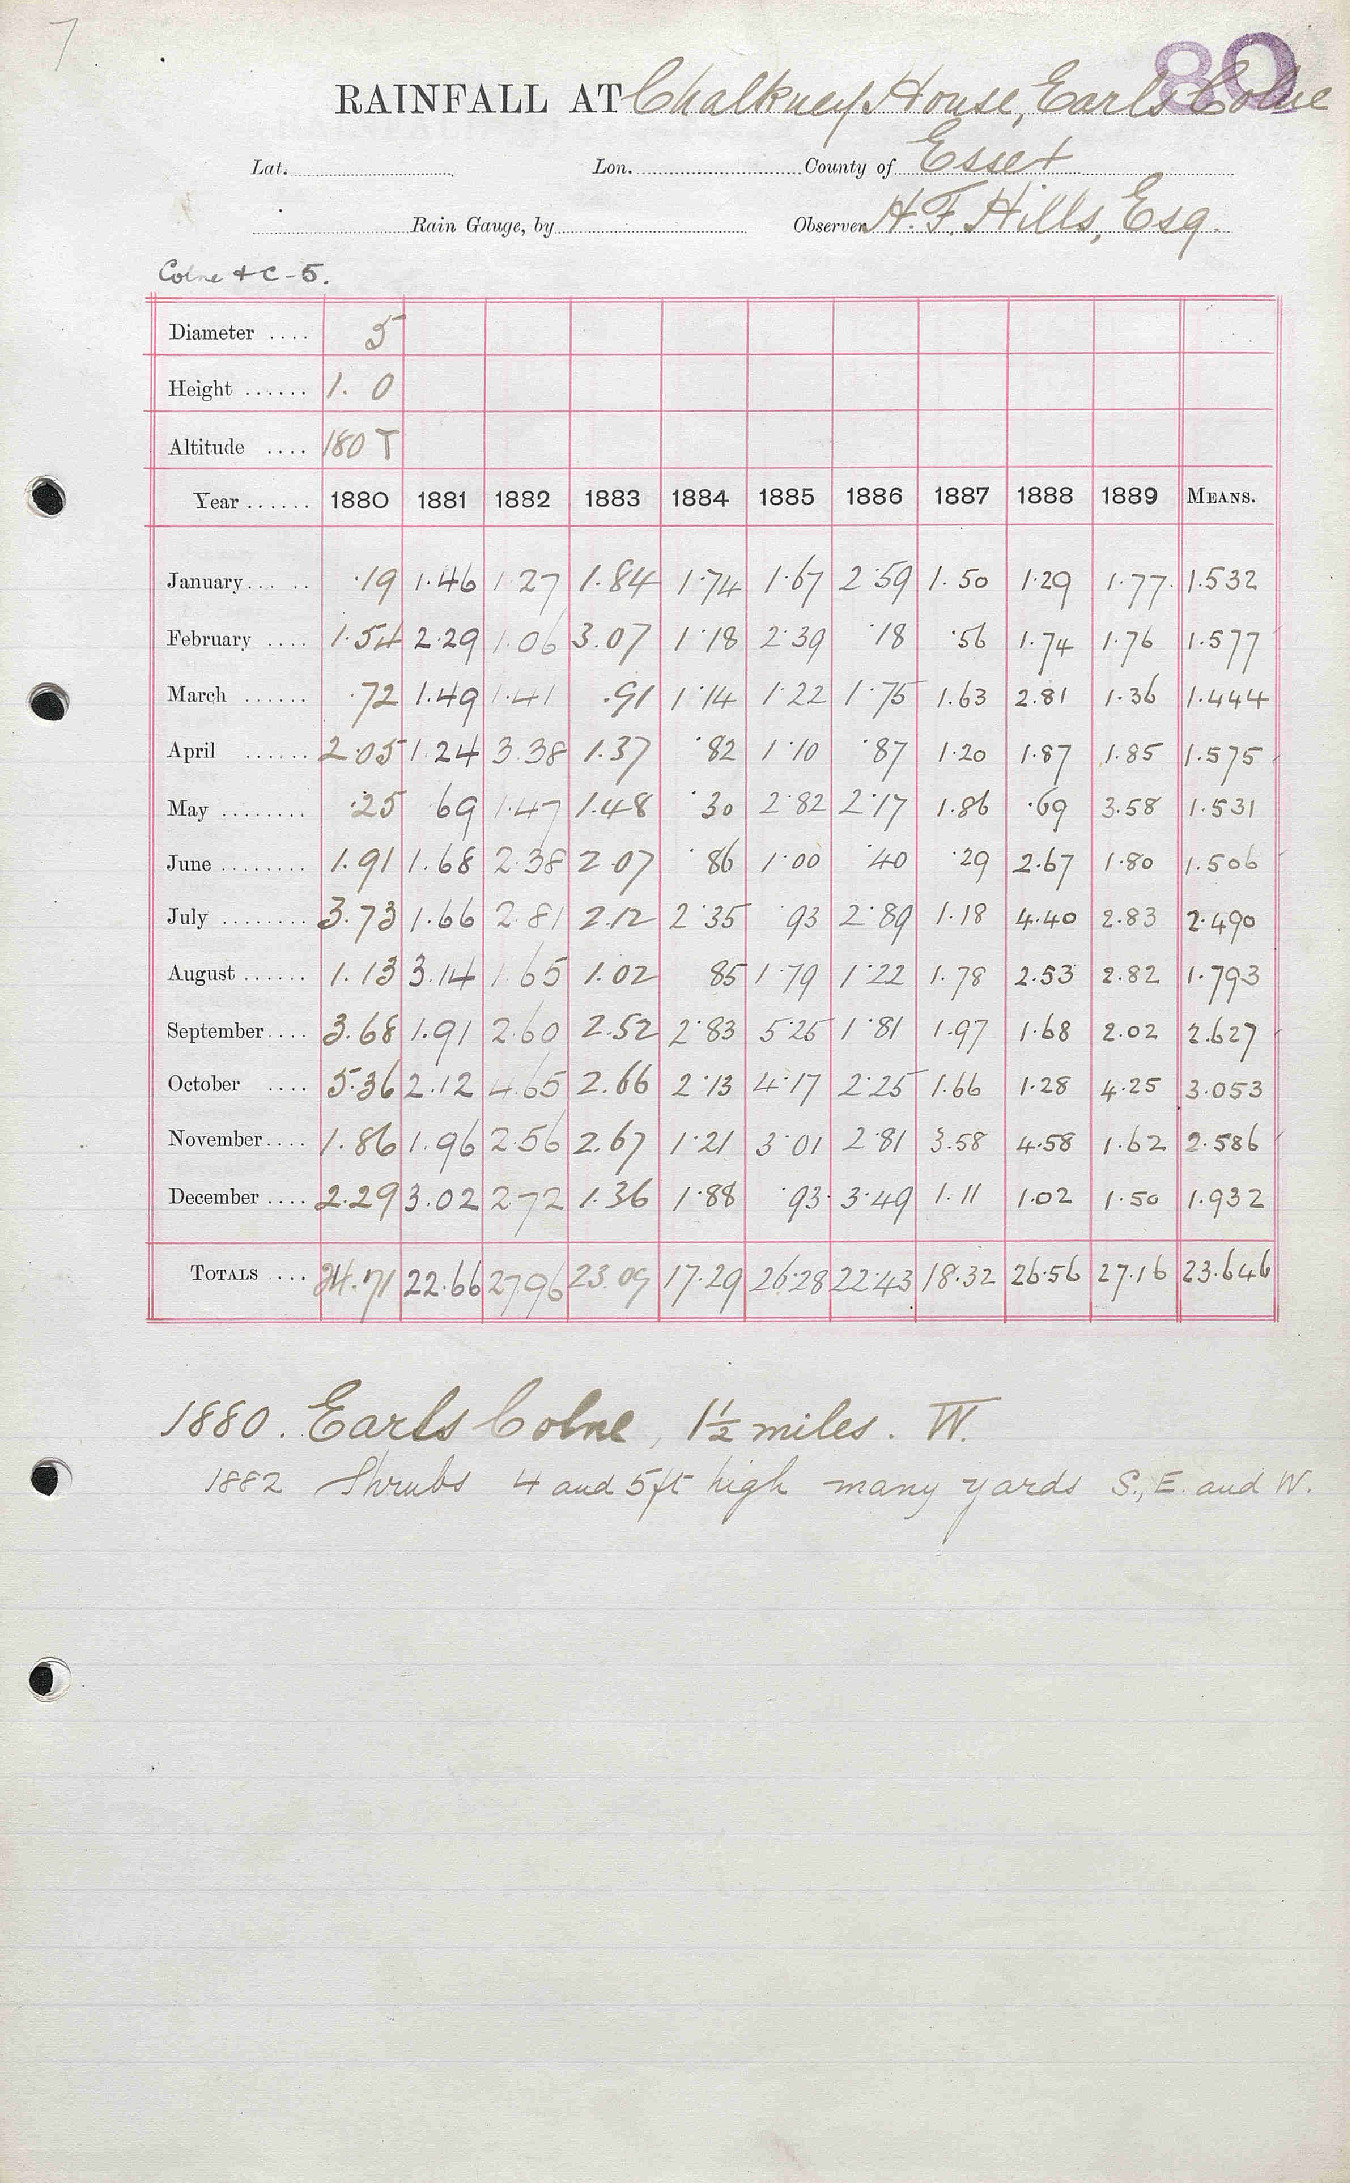 7
80
RAINFALL AT Chalkney House, Earls Colne
Lat. Lon. County of Essex
Rain Gauge, by Observer H. F. Hills, Esq.
Colne + C - 5.
Diameter .... 5
Height ...... 1. 0
Altitude .... 180 T
Year ...... 1880 1881 1882 1883 1884 1885 1886 1887 1888 1889 MEANS.
January ... .19 1.46 1.27 1.84 1.74 1.67 2.59 1.50 1.29 1.77 1.532
February .... 1.54 2.29 1.06 3.07 1.18 2.39 .18 .56 1.74 1.76 1.577
March ...... .72 1.49 1.41 .91 1.14 1.22 1.75 1.63 2.81 1.36 1.444
April ...... 2.05 1.24 3.38 1.37 .82 1.10 .87 1.20 1.87 1.85 1.575
May ........ .25 69 1.47 1.48 .30 2.82 2.17 1.86 .69 3.58 1.531
June ........ 1.91 1.68 2.38 2.07 .86 1.00 .40 .29 2.67 1.80 1.506
July ........ 3.73 1.66 2.81 2.12 2.35 .93 2.89 1.18 4.40 2.83 2.490
August ...... 1.13 3.14 1.65 1.02 85 1.79 1.22 1.78 2.53 2.82 1.793
September .... 3.68 1.91 2.60 2.52 2.83 5.25 1.81 1.97 1.68 2.02 2.627
October .... 5.36 2.12 4.65 2.66 2.13 4.17 2.25 1.66 1.28 4.25 3.053
November .... 1.86 1.96 2.56 2.67 1.21 3.01 2.81 3.58 4.58 1.62 2.586
December .... 2.29 3.02 2.72 1.36 1.88 .93 3.49 1.11 1.02 1.50 1.932
TOTALS ... 24.71 22.66 27.96 23.09 17.29 26.28 22.43 18.32 26.56 27.16 23.646
1880. Earls Colne, 1½ miles. W.
1882 Shrubs 4 and 5ft high many yards S., E. and W.